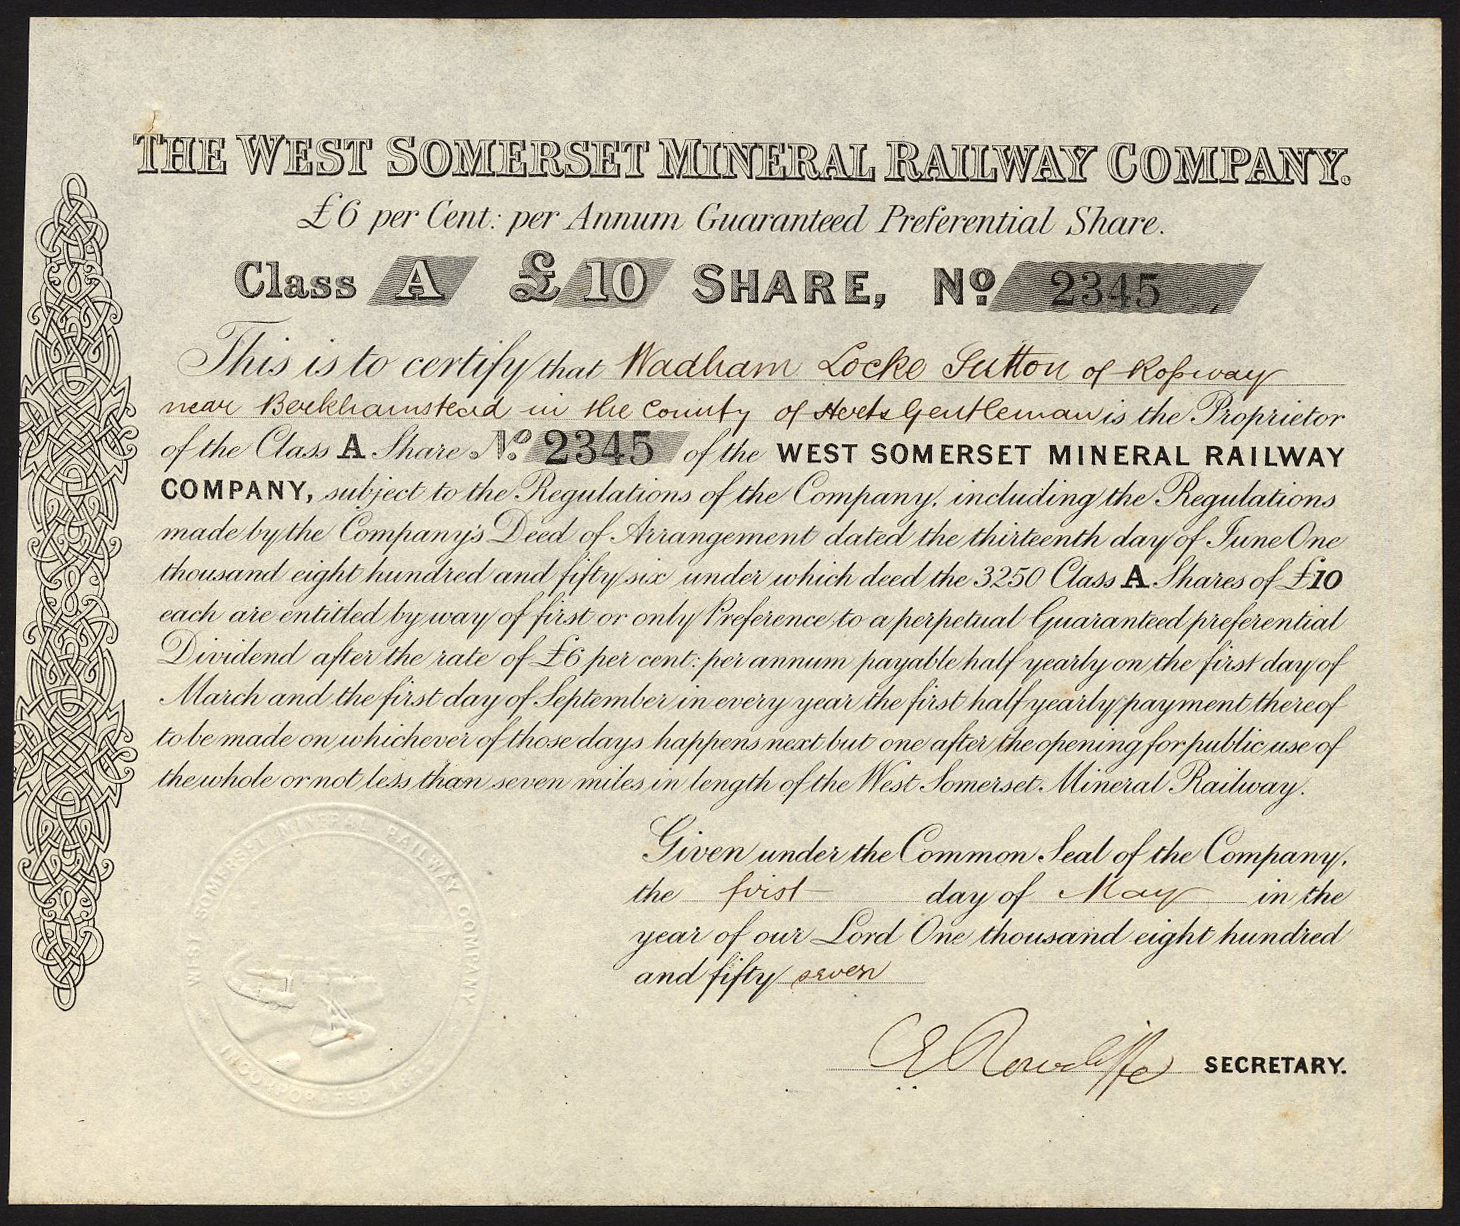 THE WEST SOMERSET MINERAL RAILWAY COMPANY.
£6 per Cent: per Annum Guaranteed Preferential Share.
Class A £10 SHARE, No 2345
This is to certify that Wadham Locke Sutton of Rossway
near Berkhamstead in the County of Herts Gentleman is the Proprietor
of the Class A Share No. 2345 of the WEST SOMERSET MINERAL RAILWAY
COMPANY, subject to the Regulations of the Company, including the Regulations
made by the Company's Deed of Arrangement dated the thirteenth day of June One
thousand eight hundred and fifty six under which deed the 3250 Class A Shares of £10
each are entitled by way of first or only Preference to a perpetual Guaranteed preferential
Dividend after the rate of £6 per cent: per annum payable half yearly on the first day of
March and the first day of September in every year the first half yearly payment thereof
to be made on whichever of those days happens next but one after the opening for public use of
the whole or not less than seven miles in length of the West Somerset Mineral Railway.
Given under the Common Seal of the Company,
the first day of May in the
year of our Lord One thousand eight hundred
and fifty seven
E Rowcliffe SECRETARY.
WEST SOMERSET MINERAL RAILWAY COMPANY
INCORPORATED